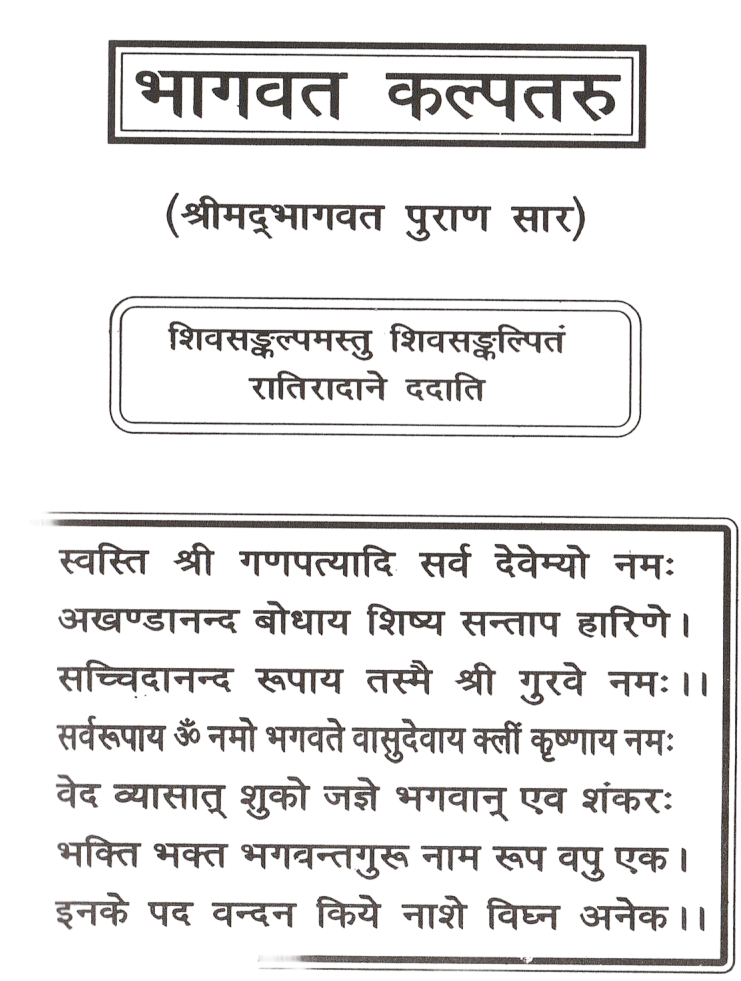 भागवत कल्पतरु
(श्रीमद्भागवत पुराण सार)
शिवसङ्कल्पमस्तु शिवसङ्कल्पितं
रातिरादाने ददाति
स्वस्ति श्री गणपत्यादि सर्व देवेम्यो नमः
अखण्डानन्द बोधाय शिष्य सन्ताप हारिणे।
सच्चिदानन्द रूपाय तस्मै श्री गुरवे नमः।।
सर्वरूपाय ॐ नमो भगवते वासुदेवाय क्लीं कृष्णाय नमः
वेद व्यासात् शुको जज्ञे भगवान् एव शंकरः
भक्ति भक्त भगवन्तगुरू नाम रूप वपु एक।
इनके पद वन्दन किये नाशे विघ्न अनेक।।